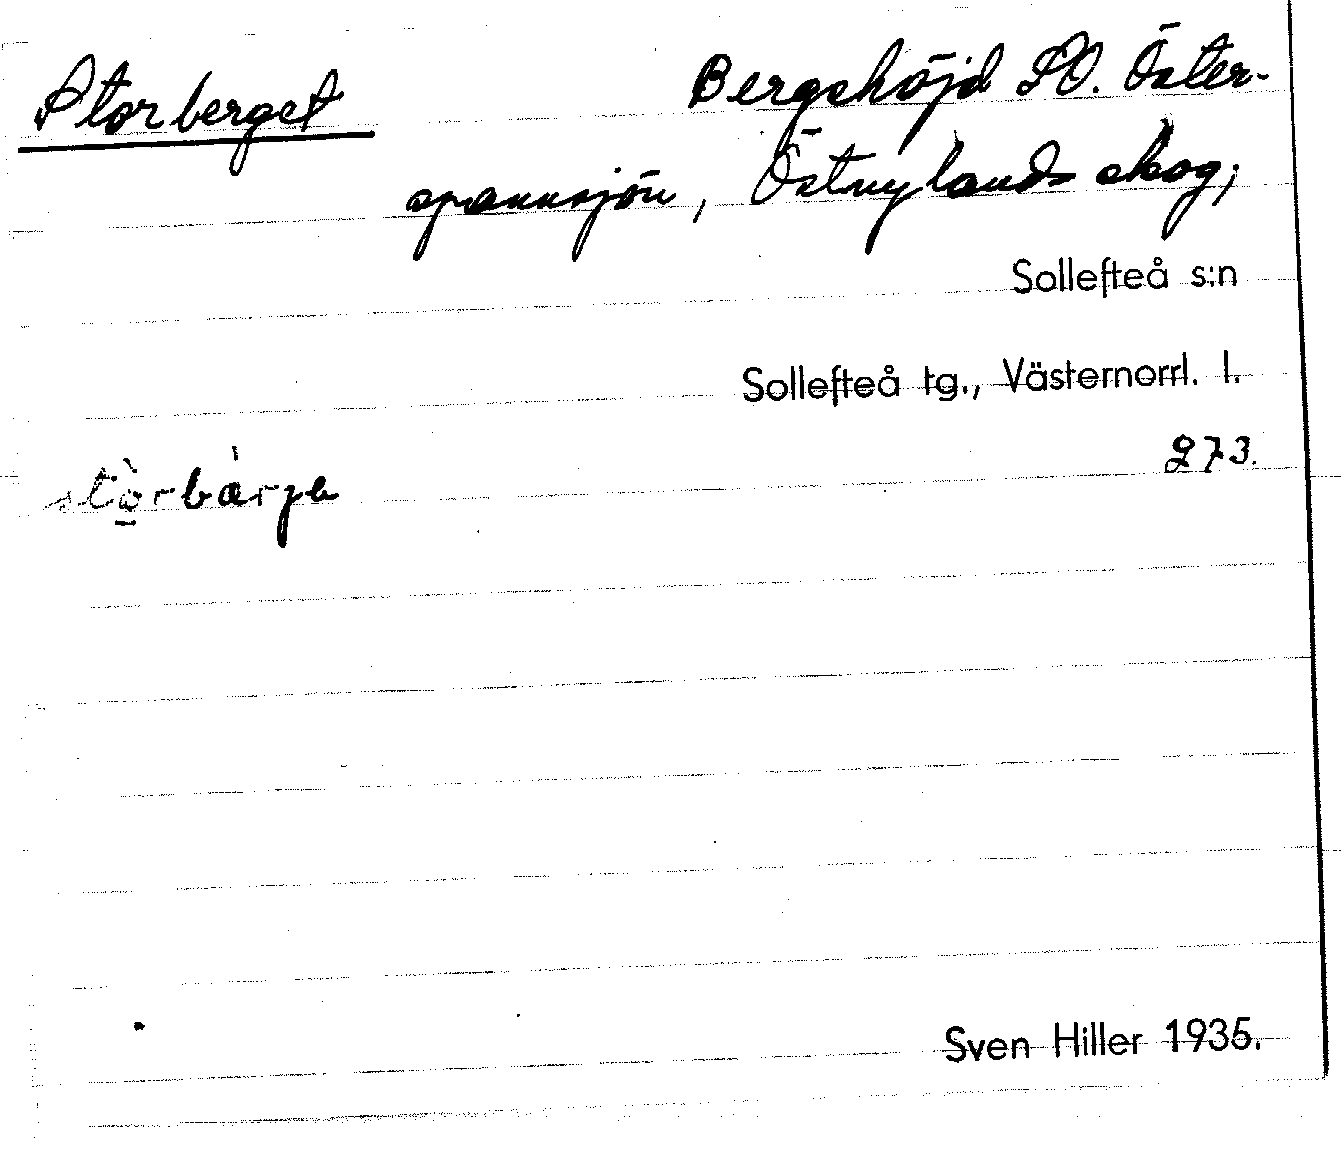 Storberget
Bergshöjd SO. Öster-
spannsjön, Östnylands skog;
Sollefteå s:n
Sollefteå tg., Västernorrl. l.
273.
Sven Hiller 1935.